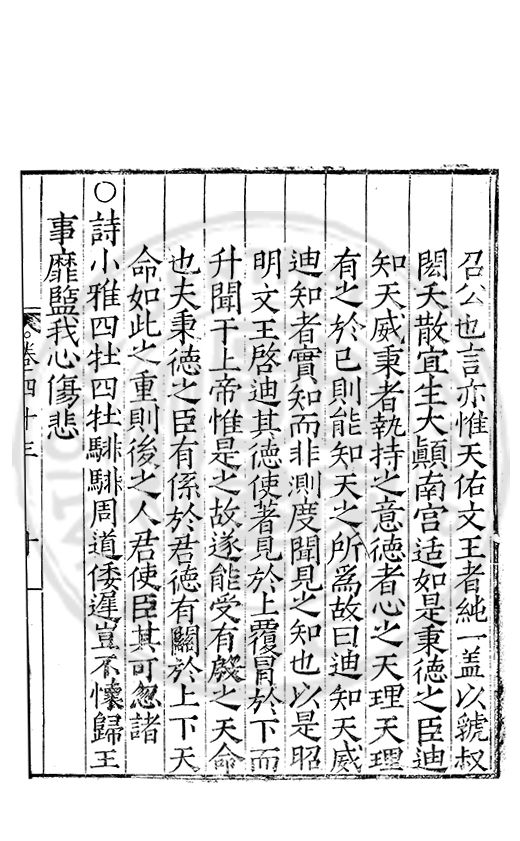 召公也言亦惟天佑文王者純一盖以虢叔
閎夭散宜生大顚南宫适如是秉德之臣迪
知天威秉者執持之意德者心之天理天理
有之於已則能知天之所爲故曰迪知天威
迪知者實知而非測度聞見之知也以是昭
明文王啓迪其德使著見於上覆冒於下而
升聞于上帝惟是之故遂能受有殷之天命
也夫秉德之臣有係於君德有關於上下天
命如此之重則後之人君使臣其可忽諸
○詩小雅四牡四牡騑騑周道倭遲豈不懷歸王
事靡盬我心傷悲
卷四十三
十